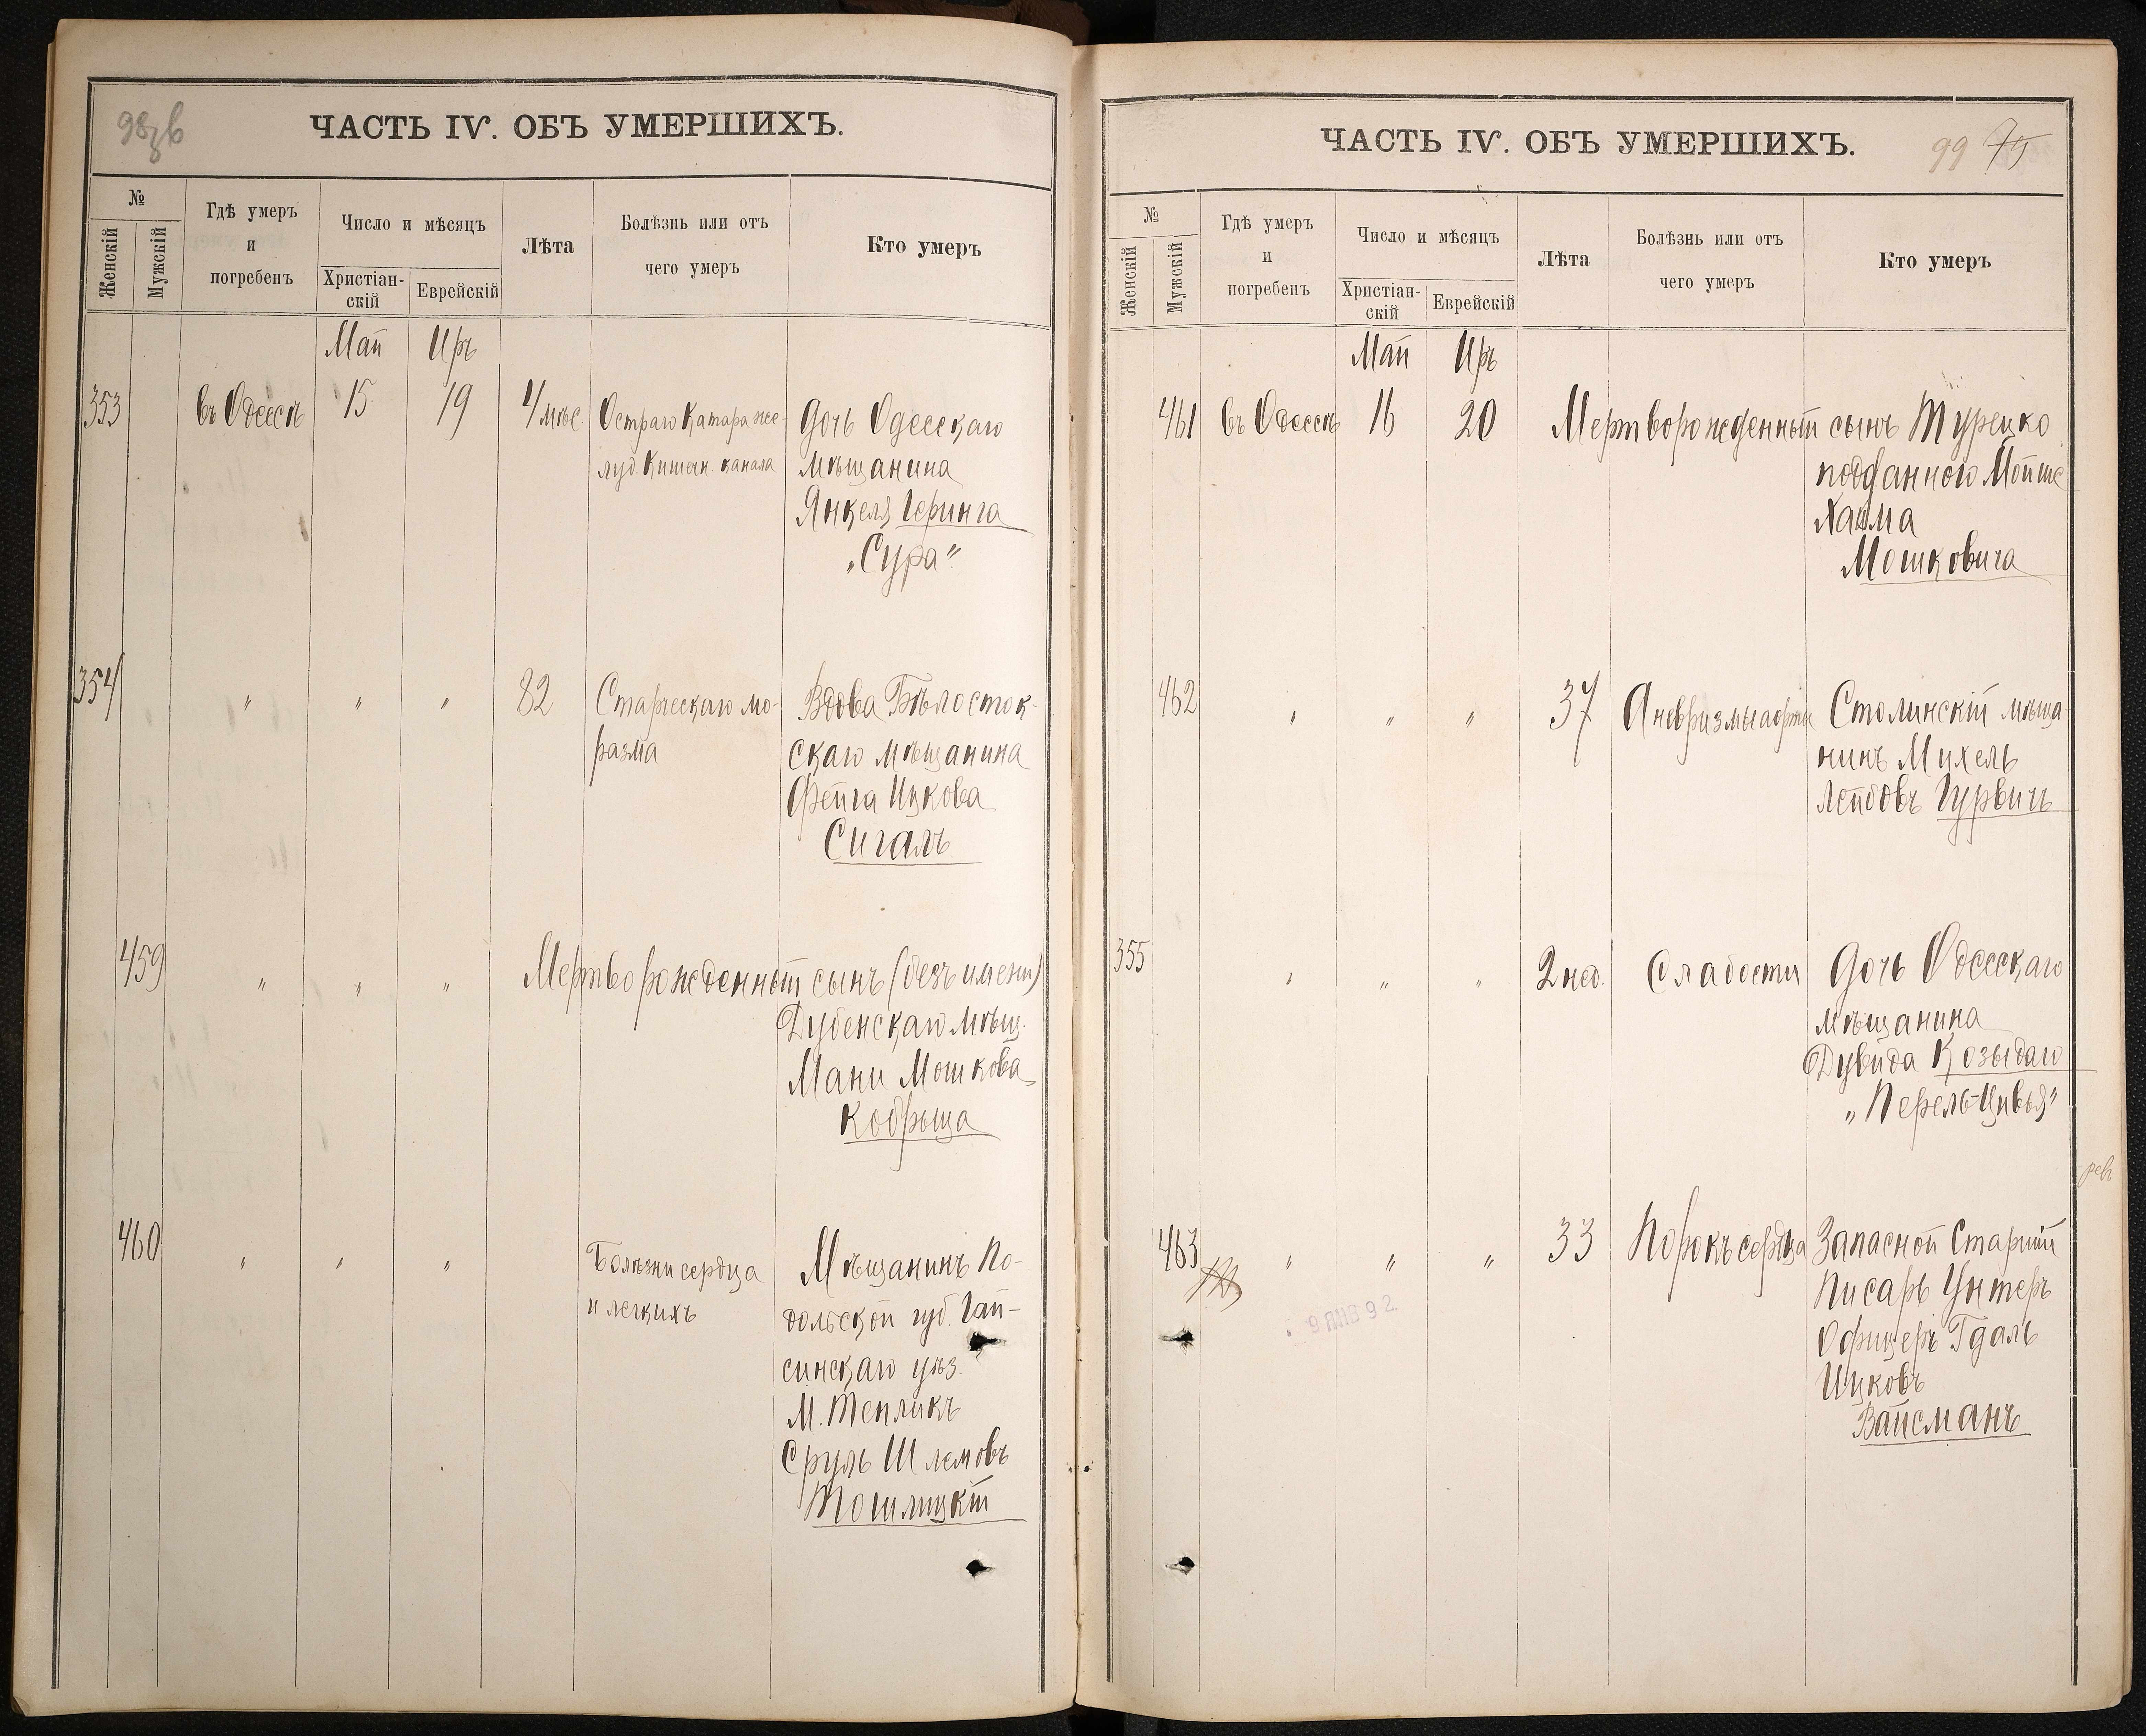 ЧАСТЬ IV. ОБЪ УМЕРШИХЪ.
№
Женскій
Мужскій
Гдѣ умеръ
и
погребенъ
Число и мѣсяцъ
Христіан-
скій
Еврейскій
Лѣта
Болѣзнь или отъ
чего умеръ
Кто умеръ
Май Иръ
353 въ Одессѣ 15 19 4 мѣс. Остраго Катара же- Дочь Одесскаго
луд. Кишечн. канала мѣщанина
Янкеля Геринга
„Сура“
354 " " " 82 Старческаго мо- Вдова Бѣлосток-
разма скаго мѣщанина
Фейга Ицкова
Сигалъ
459 " " " Мертворожденный сынъ (безъ имени)
Дубенскаго мѣщ.
Мани Мошкова
Кобрыца
460 " " " Болѣзни сердца Мѣщанинъ По-
и легкихъ дольской губ. Гай-
синскаго уѣз.
М. Тепликъ
Сруль Шлемовъ
Тошлицкій
ЧАСТЬ IV. ОБЪ УМЕРШИХЪ. 99 75
№
Женскій
Мужскій
Гдѣ умеръ
и
погребенъ
Число и мѣсяцъ
Христіан-
скій
Еврейскій
Лѣта
Болѣзнь или отъ
чего умеръ
Кто умеръ
Май Иръ
461 въ Одессѣ 16 20 Мертворожденный сынъ Турецко
подданного Мойше
Хаима
Мошковича
462 " " " 37 Аневризмы аорты Столинскій мѣща-
нинъ Михель
Лейбовъ Гурвичъ
355 " " " 2 нед. Слабости Дочь Одесскаго
мѣщанина
Дувида Козыдаго
„Перель-Цивья“
463 " " " 33 Порокъ сердца Запасной Старшій
Писарь Унтеръ
Офицеръ Гдаль
Ицковъ
Вайсманъ
9 ЯНВ 92